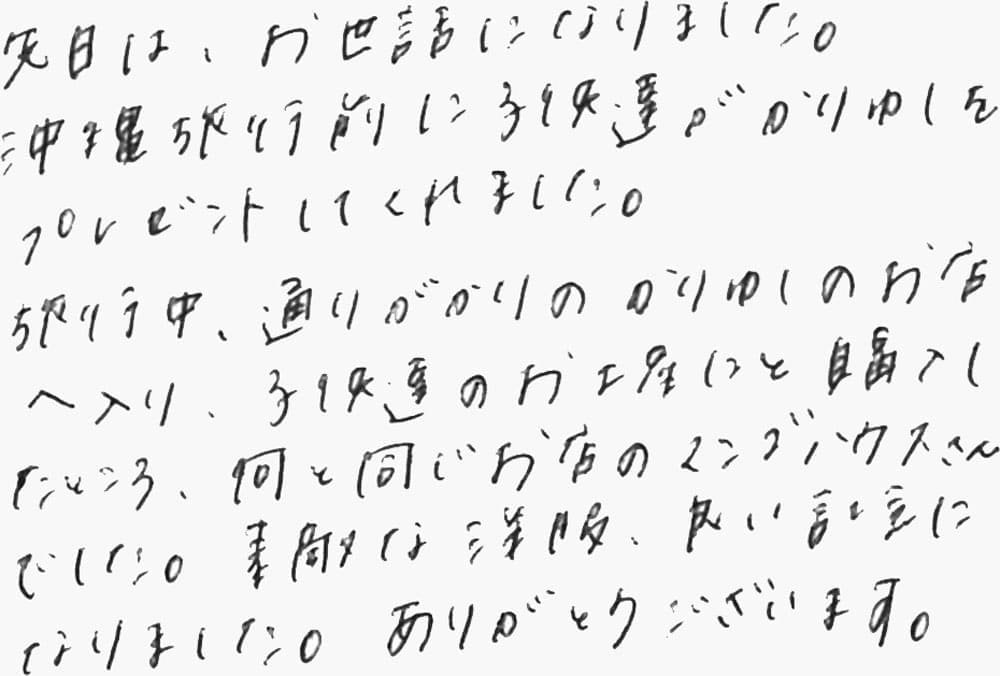 先日は、お世話になりました。
沖縄旅行前に子供達がかりゆしを
プレゼントしてくれました。
旅行中、通りがかりのかりゆしのお店
へ入り、子供達のお土産にと購入し
たところ、何と同じお店のマンゴハウスさん
でした。素敵な洋服、良い記念に
なりました。ありがとうございます。